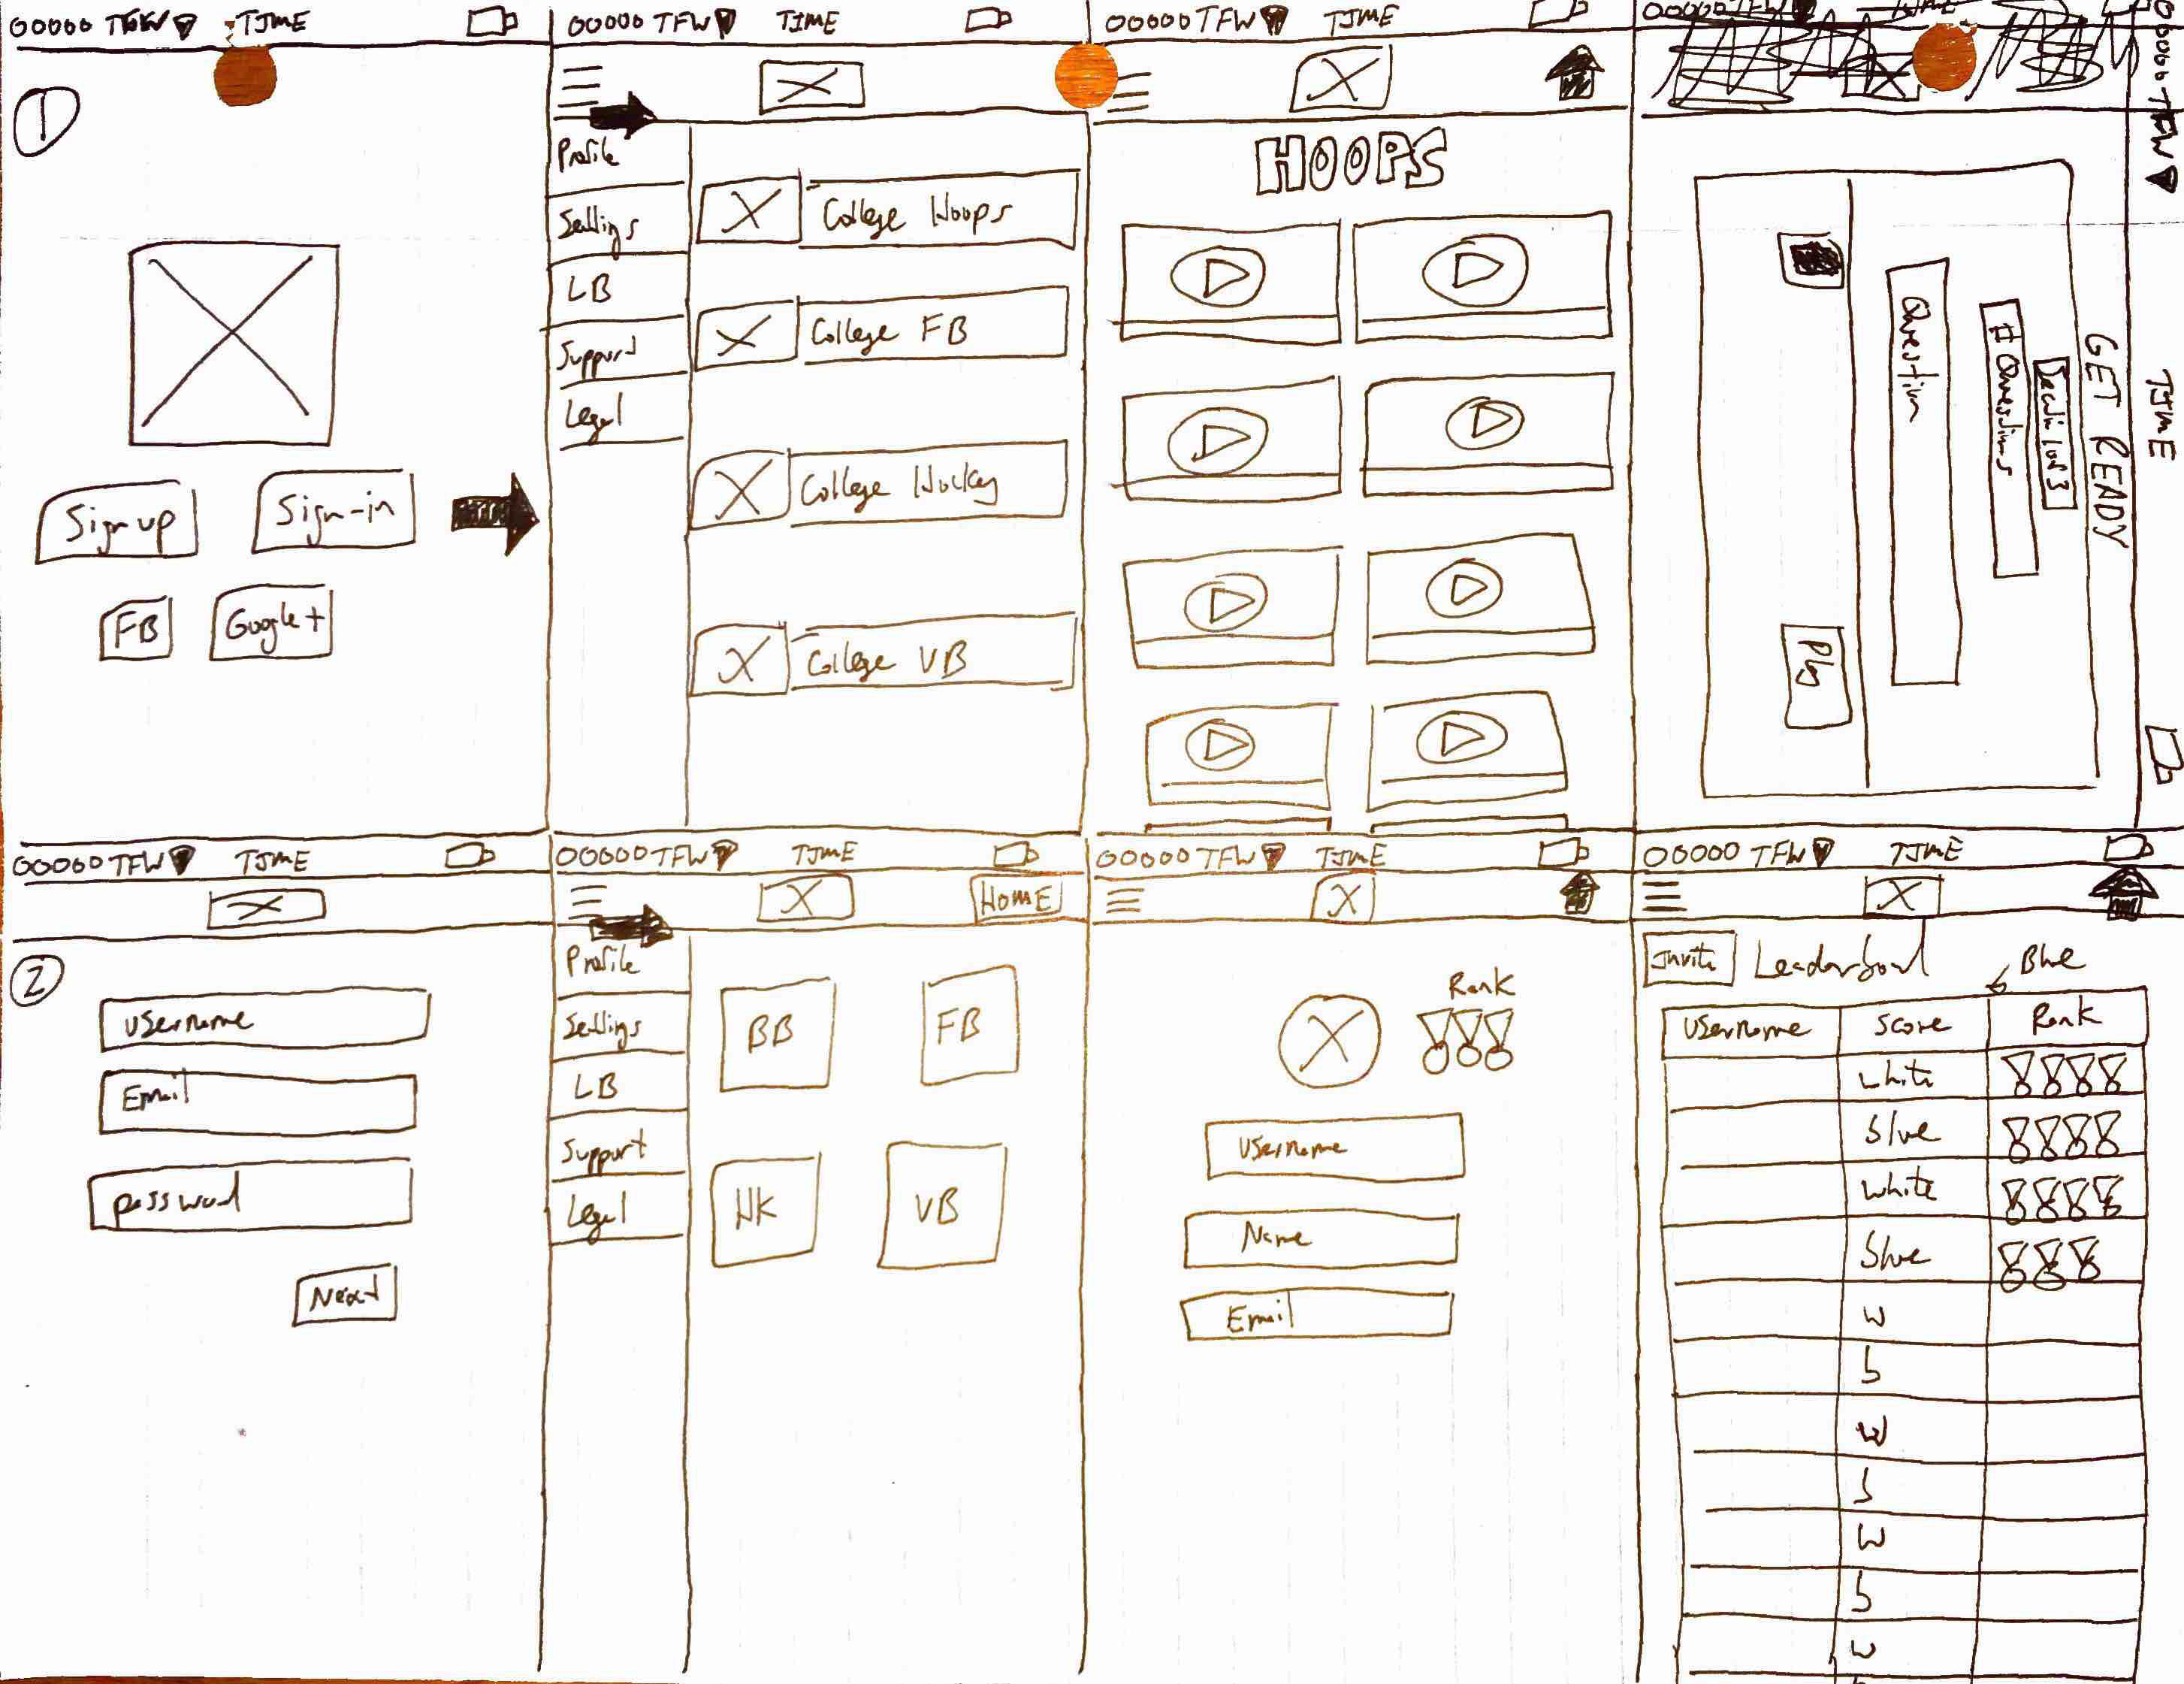 00000 TFW TIME
1
Sign up
Sign-in
FB
Google+
00000 TFW TIME
Profile
Settings
LB
Support
Legal
College Hoops
College FB
College Hockey
College VB
00000 TFW TIME
HOOPS
00000 TFW TIME
00000 TFW TIME
GET READY
# Questions
Question
Play
00000 TFW TIME
2
Username
Email
password
Next
00000 TFW TIME
HOME
Profile
Settings
LB
Support
Legal
BB
FB
HK
VB
00000 TFW TIME
Rank
Username
Name
Email
00000 TFW TIME
Invite Leaderboard Blue
Username Score Rank
white
blue
white
blue
w
b
w
b
w
b
w